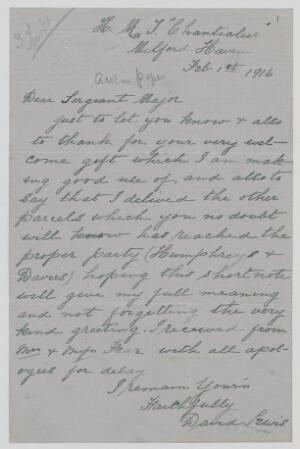 H. M. T "Chanticleer"
Milford-Haven
Feb 1st 1916
Dear Sergeant Major
just to let you know & also
to thank for your very wel-
come gift which I am mak
ing good use of, and also to
say that I delived the other
parcels which you no doubt
will know has reached the
proper party (Humphreys &
Davies) hoping this short note
will give my full meaning
and not forgetting the very
kind greeting. I received from
Mrs & Miss Fear with all apol-
ogies for delay
I remain Yours
Faithfully
David Lewis